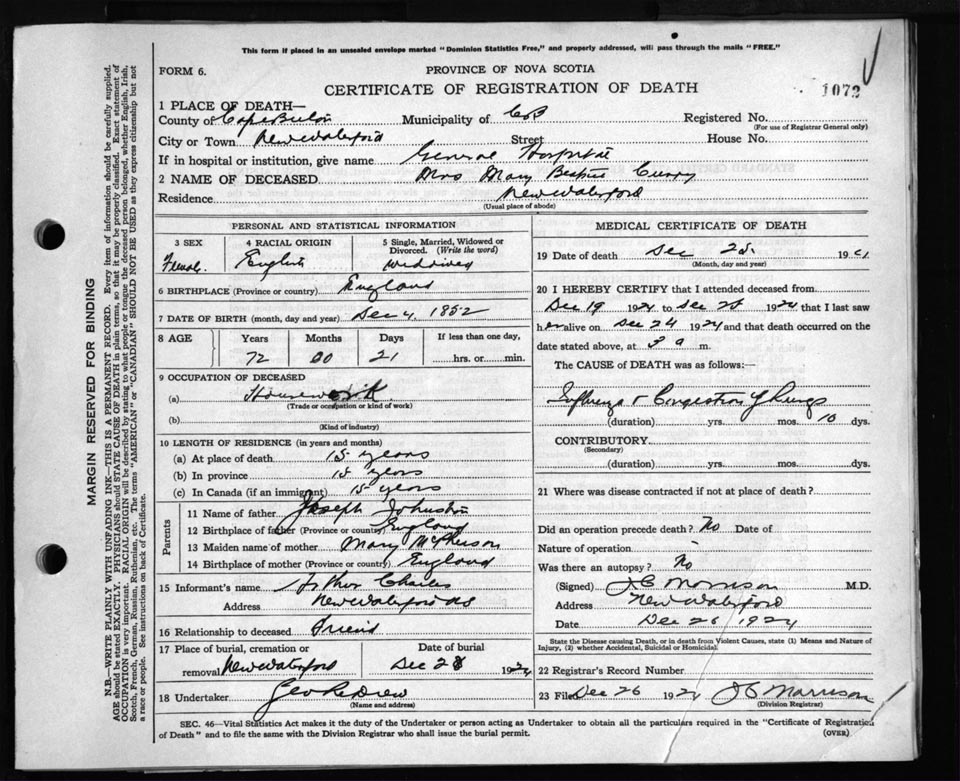 This form if placed in an unsealed envelope marked "Dominion Statistics Free," and properly addressed, will pass through the mails "FREE."
FORM 6. PROVINCE OF NOVA SCOTIA
CERTIFICATE OF REGISTRATION OF DEATH 1072
1 PLACE OF DEATH—
County of Cape Breton Municipality of CB Registered No.
(For use of Registrar General only)
City or Town New Waterford Street House No.
If in hospital or institution, give name General Hospital
2 NAME OF DECEASED Mrs Mary Curry
Residence New Waterford
(Usual place of abode)
PERSONAL AND STATISTICAL INFORMATION
3 SEX 4 RACIAL ORIGIN 5 Single, Married, Widowed or Divorced. (Write the word)
Female English widowed
6 BIRTHPLACE (Province or country) England
7 DATE OF BIRTH (month, day and year) Dec 4, 1852
8 AGE Years Months Days If less than one day,
72 00 21 hrs. or min.
9 OCCUPATION OF DECEASED
(a) Housework
(Trade or occupation or kind of work)
(b)
(Kind of industry)
10 LENGTH OF RESIDENCE (in years and months)
(a) At place of death 15 years
(b) In province 15 years
(c) In Canada (if an immigrant) 15 years
Parents
11 Name of father Joseph Johnston
12 Birthplace of father (Province or country) England
13 Maiden name of mother Mary McPherson
14 Birthplace of mother (Province or country) England
15 Informant's name Arthur Charles
Address New Waterford NS
16 Relationship to deceased Friend
17 Place of burial, cremation or Date of burial
removal New Waterford Dec 28 1924
18 Undertaker Geo
(Name and address)
MEDICAL CERTIFICATE OF DEATH
19 Date of death Dec 25 19
(Month, day and year)
20 I HEREBY CERTIFY that I attended deceased from
Dec 19 1924 to Dec 25 1924 that I last saw
her alive on Dec 24 1924 and that death occurred on the
date stated above, at 3 a m.
The CAUSE of DEATH was as follows:—
Influenza & Congestion of Lungs
(duration) yrs. mos. 10 dys.
CONTRIBUTORY
(Secondary)
(duration) yrs. mos. dys.
21 Where was disease contracted if not at place of death?
Did an operation precede death? No Date of
Nature of operation -
Was there an autopsy? No
(Signed) J C Morrison M.D.
Address New Waterford
Date Dec 26 1924
State the Disease causing Death, or in death from Violent Causes, state (1) Means and Nature of
Injury, (2) whether Accidental, Suicidal or Homicidal.
22 Registrar's Record Number
23 Filed Dec 26 1924 J C Morrison
(Division Registrar)
SEC. 46—Vital Statistics Act makes it the duty of the Undertaker or person acting as Undertaker to obtain all the particulars required in the "Certificate of Registration
of Death" and to file the same with the Division Registrar who shall issue the burial permit. (OVER)
MARGIN RESERVED FOR BINDING
N.B.—WRITE PLAINLY WITH UNFADING INK—THIS IS A PERMANENT RECORD. Every item of information should be carefully supplied.
AGE should be stated EXACTLY. PHYSICIANS should STATE CAUSE OF DEATH in plain terms, so that it may be properly classified. Exact statement of
OCCUPATION is very important. RACIAL ORIGIN will be described by stating to what people or tongue the deceased person belonged, whether English, Irish,
Scotch, French, German, Russian, Ruthenian, etc. The terms "AMERICAN" or "CANADIAN" SHOULD NOT BE USED as they express citizenship but not
a race or people. See instructions on back of Certificate.